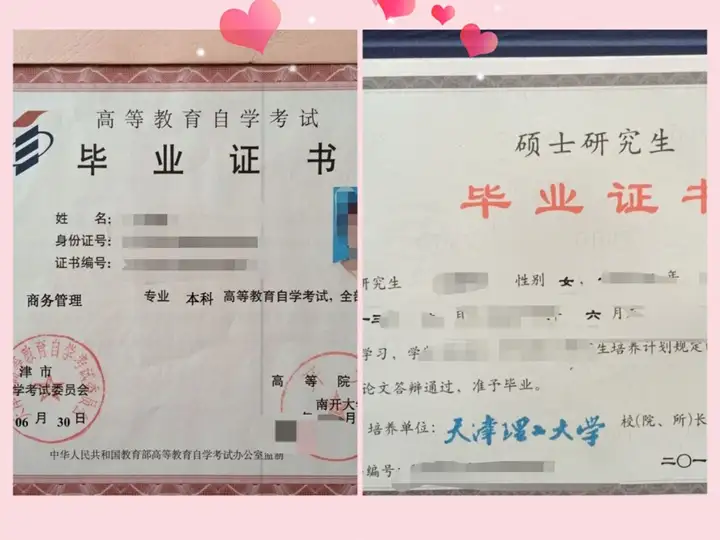 高等教育自学考试
毕业证书
姓 名:
身份证号:
证书编号:
商务管理 专业 本科 高等教育自学考试,全部
津市
学考试委员会
06月30日
高等院
南开大
月
中华人民共和国教育部高等教育自学考试办公室监制
硕士研究生
毕业证
研究生 性别 女, 年
一三 日 六月
学习, 生培养计划规定
论文答辩通过,准予毕业。
培养单位: 天津理工大学 校(院、所)长
编号:
二〇一